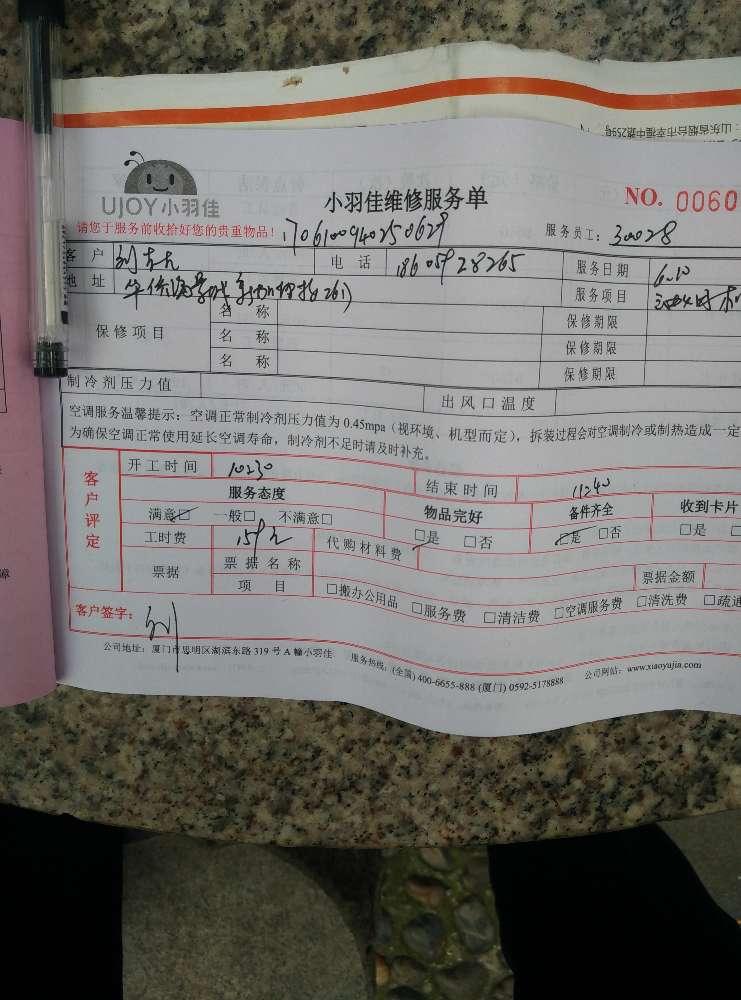 UJOY小羽佳
小羽佳维修服务单
NO. 0060
请您于服务前收拾好您的贵重物品!
1706100940250629
服务员工: 30028
客 户 刘
电 话 18605928265
服务日期 6.10
地 址
服务项目
保修项目
名 称
保修期限
名 称
保修期限
名 称
保修期限
制冷剂压力值
出风口温度
空调服务温馨提示: 空调正常制冷剂压力值为 0.45mpa (视环境、机型而定), 拆装过程会对空调制冷或制热造成一定
为确保空调正常使用延长空调寿命, 制冷剂不足时请及时补充。
客户评定
开工时间 10:30
结束时间 11:40
服务态度
物品完好
备件齐全
收到卡片
满意☑ 一般□ 不满意□
□是 □否
☑是 □否
□是
工时费 159元
代购材料费
票据
票据名称
票据金额
项 目
□搬办公用品 □服务费 □清洁费 □空调服务费 □清洗费 □疏通
客户签字: 刘
公司地址: 厦门市思明区湖滨东路 319 号 A 幢小羽佳
服务热线: (全国) 400-6655-888 (厦门) 0592-5178888
公司网站: www.xiaoyujia.com
山东省烟台市幸福中路259号
障